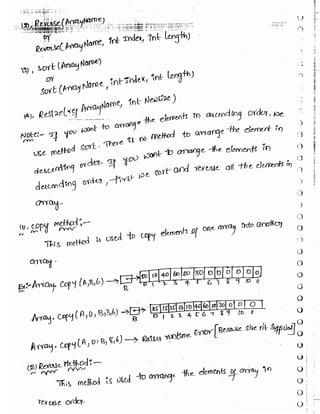 (3). Reverse(ArrayName)
or
Reverse(ArrayName, int Index, int Length)
, Sort (ArrayName)
or
Sort (ArrayName, int Index, int Length)
Resize(ref ArrayName, int NewSize)
Note:- If you want to arrange the elements in ascending order, we
use method Sort. There is no method to arrange the element in
descending order. If you want to arrange the elements in
descending order, first we sort and reverse all the elements in
array.
(1). Copy method:-
This method is used to copy elements of one array into another
array.
Ex:- Array. Copy (A,B,6) →
B
Array. Copy (A,0,B,3,6) →
B
Array. Copy (A,0,B,8,6) → Raises runtime Error
(2) Reverse Method:-
This method is used to arrange the elements of array in
reverse order.